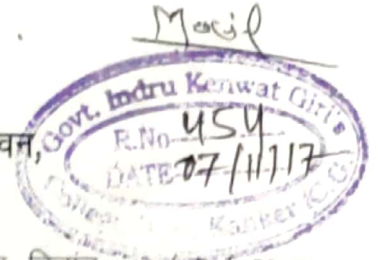 Mail
Govt. Indru Kenwat Girl's
वन,
R.No 454
DATE 07/11/17
Kanker (C.G.)